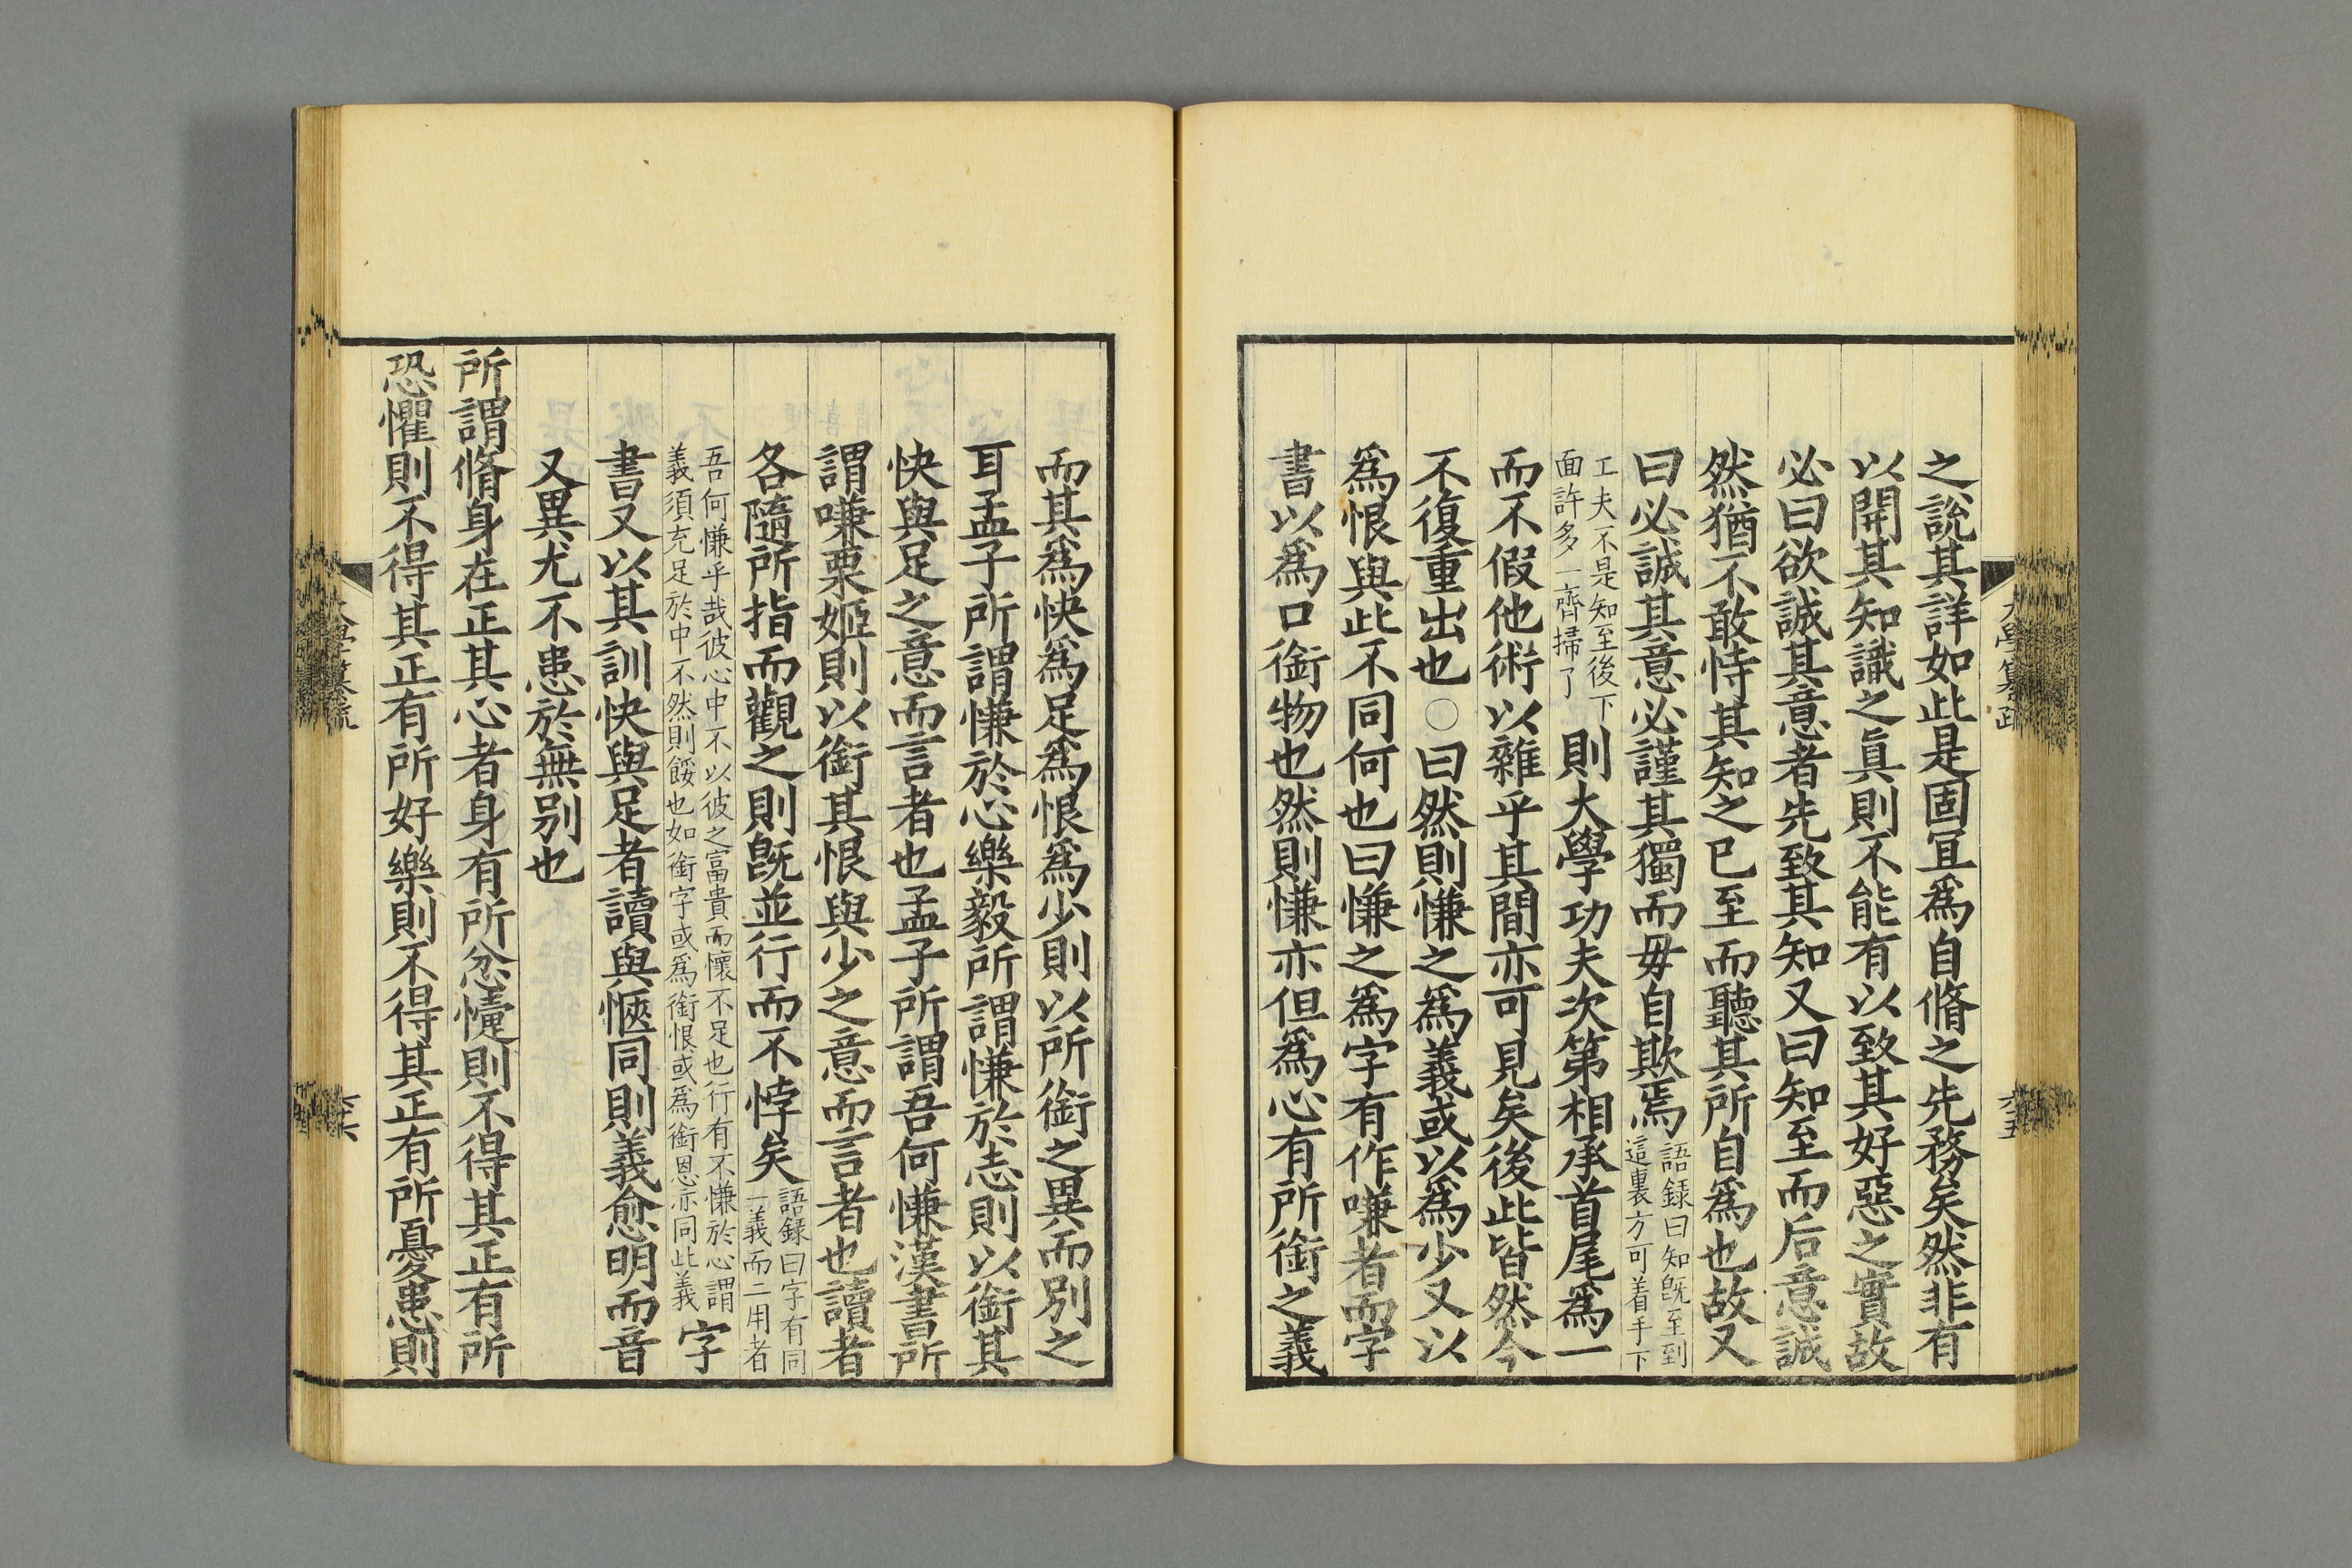 之說其詳如此是固冝爲自脩之先務矣然非有
以開其知識之眞則不能有以致其好惡之實故
必曰欲誠其意者先致其知又曰知至而后意誠
然猶不敢恃其知之已至而聽其所自爲也故又
曰必誠其意必謹其獨而毋自欺焉語録曰知旣至到這裏方可着手下
工夫不是知至後下面許多一齊掃了則大學功夫次第相承首尾爲一
而不假他術以雜乎其間亦可見矣後此皆然今
不復重出也○曰然則慊之爲義或以爲少又以
爲恨與此不同何也曰慊之爲字有作嗛者而字
書以爲口銜物也然則慊亦但爲心有所銜之義
大學纂疏
六十五
而其爲快爲足爲恨爲少則以所銜之異而別之
耳孟子所謂慊於心樂毅所謂慊於志則以銜其
快與足之意而言者也孟子所謂吾何慊漢書所
謂嗛栗姬則以銜其恨與少之意而言者也讀者
各隨所指而觀之則旣並行而不悖矣語録曰字有同一義而二用者
吾何慊乎哉彼心中不以彼之富貴而懷不足也行有不慊於心謂義須充足於中不然則餒也如銜字或爲銜恨或爲銜恩亦同此義字
書又以其訓快與足者讀與愜同則義愈明而音
又異尤不患於無別也
所謂脩身在正其心者身有所忿懥則不得其正有所
恐懼則不得其正有所好樂則不得其正有所憂患則
大學纂疏